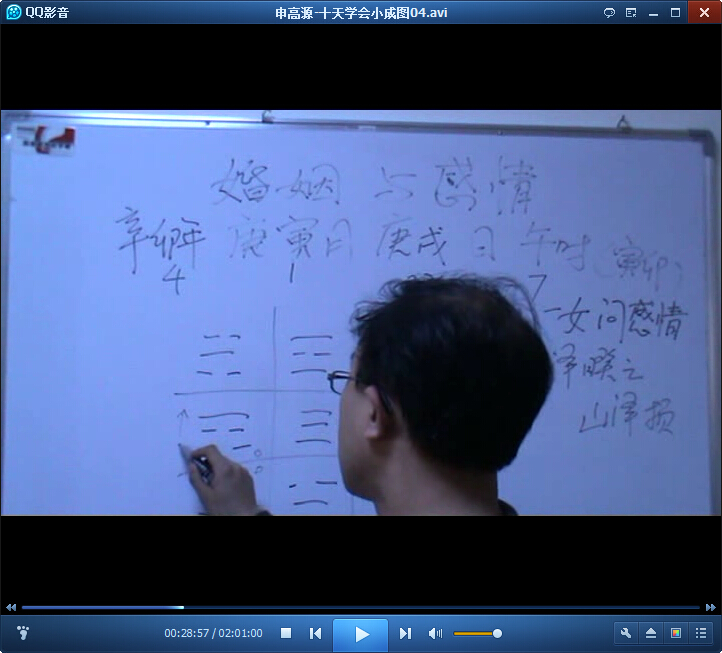 QQ影音
申高源-十天学会小成图04.avi
婚姻与感情
辛卯年 庚寅月 庚戌日 午时(寅卯)
4 1 7
一女问感情
泽睽之
山泽损
00:28:57 / 02:01:00